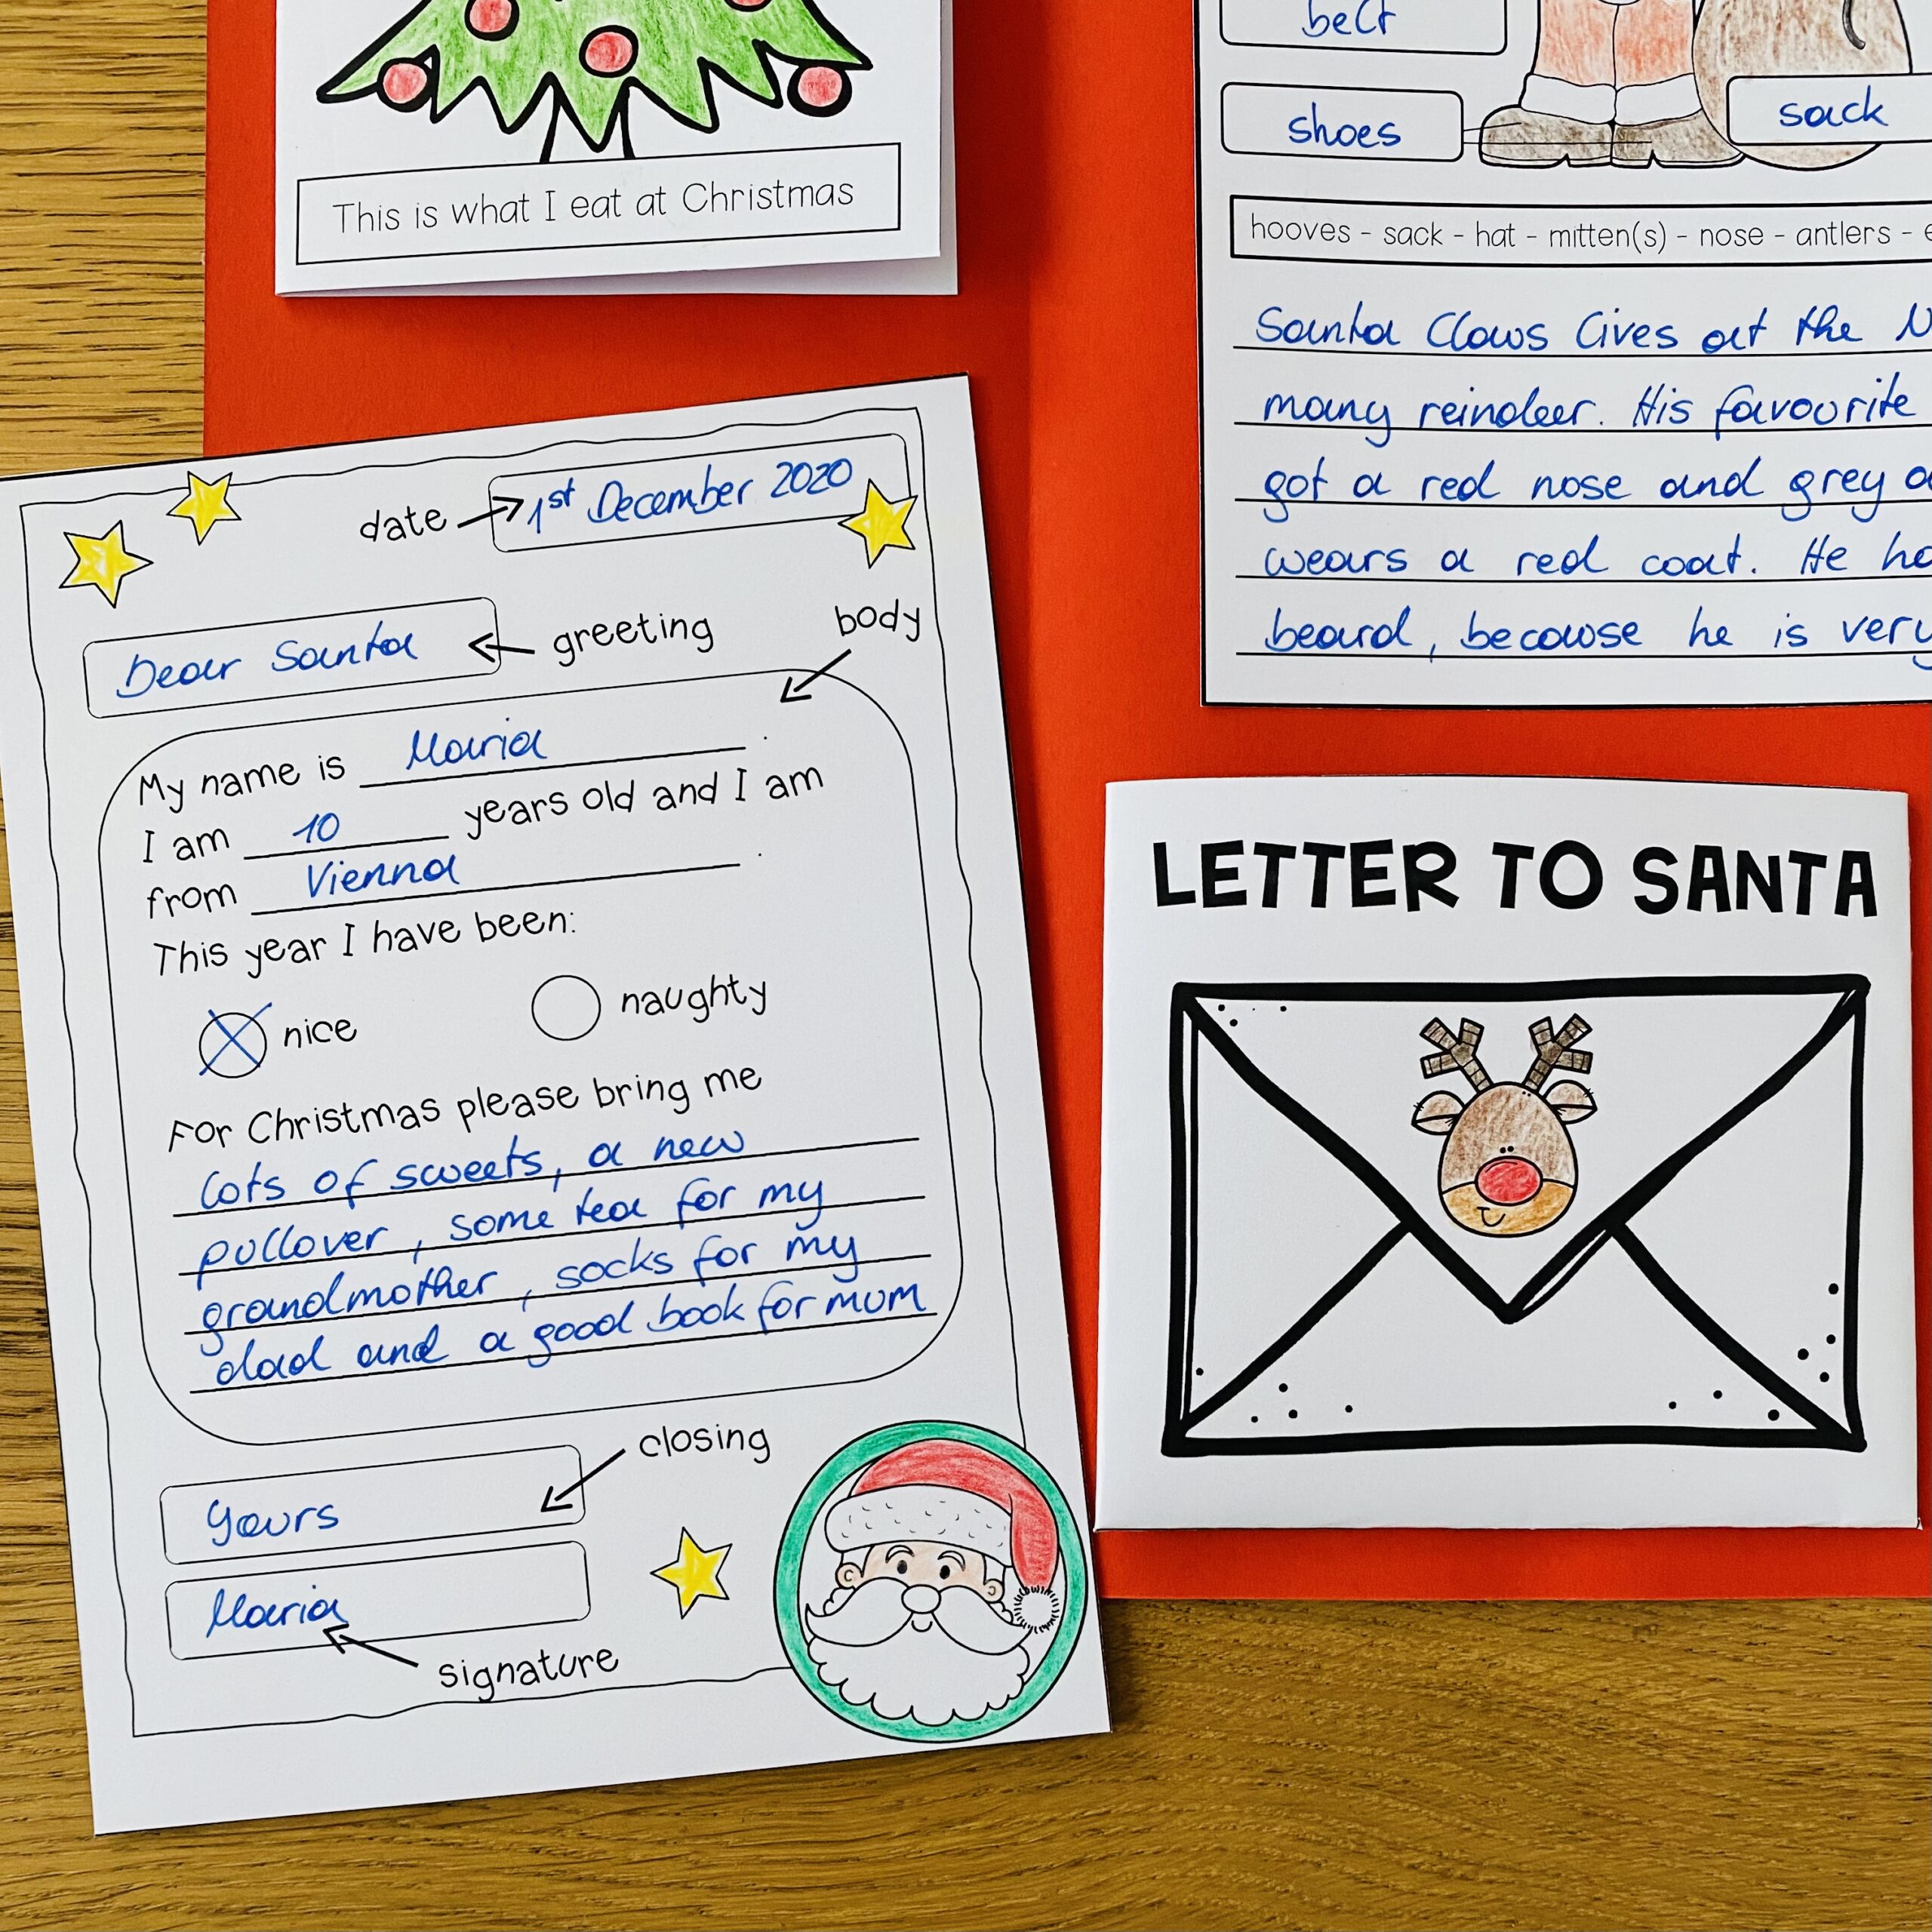 This is what I eat at Christmas
belt
shoes
sack
hooves - sack - hat - mitten(s) - nose - antlers -
Santa Claus lives at the
many reindeer. His favourite
got a red nose and grey
wears a red coat. He
beard, because he is very
date
1st December 2020
Dear Santa
greeting
body
My name is Maria .
I am 10 years old and I am
from Vienna .
This year I have been:
nice naughty
For Christmas please bring me
lots of sweets, a new
pullover, some tea for my
grandmother, socks for my
dad and a good book for mum
closing
Yours
Maria
signature
LETTER TO SANTA